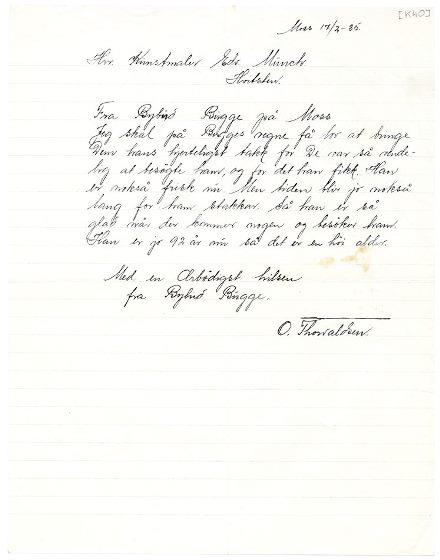 [K40]
Moss 17/2-35.
Hr. Kunstmaler Edv. Münch
Hvitsten.
Fra Bybud Bugge på Moss
Jeg skal på Bugges vegne få lov at bringe
Dem hans hjerteligst takk for De var så venle-
lig at besøgte ham, og for det han fikk. Han
er nokså frisk nu. Men tiden blir jo nokså
lang for ham stakkar. Så han er så
glad når der kommer nogen og besøker ham.
Han er jo 92 år nu så det er en høi alder.
Med en Ærbødigst hilsen
fra Bybud Bugge.
O. Thorvaldsen.